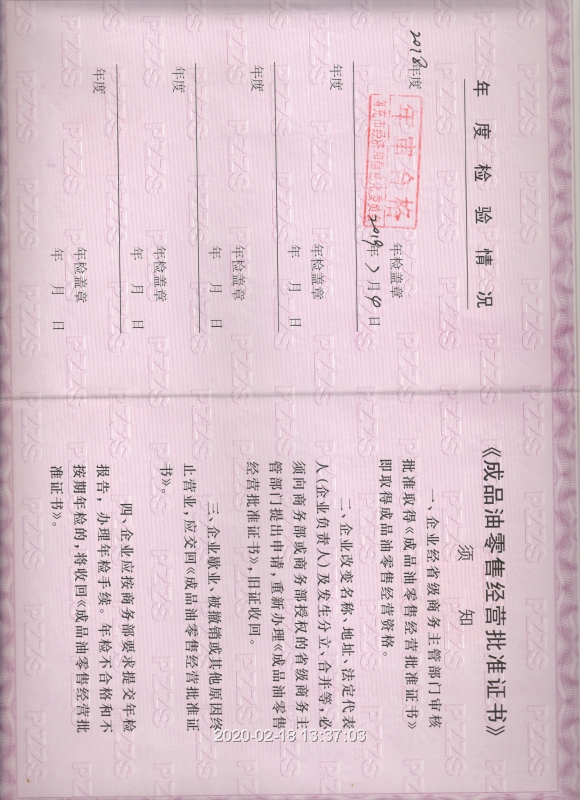 年度检验情况
2018年度
年审合格
年检盖章
2019年 7月 9日
年度
年检盖章
年 月 日
年度
年检盖章
年 月 日
年度
年检盖章
年 月 日
年度
年检盖章
年 月 日
《成品油零售经营批准证书》
须 知
一、企业经省级商务主管部门审核
批准取得《成品油零售经营批准证书》
即取得成品油零售经营资格。
二、企业改变名称、地址、法定代表
人(企业负责人)及发生分立、合并等,必
须向商务部或商务部授权的省级商务主
管部门提出申请,重新办理《成品油零售
经营批准证书》,旧证收回。
三、企业歇业、被撤销或其他原因终
止营业,应交回《成品油零售经营批准证
书》。
四、企业应按商务部要求提交年检
报告,办理年检手续。年检不合格和不
按期年检的,将收回《成品油零售经营批
准证书》。
2020-02-18 13:37:03
PZZS